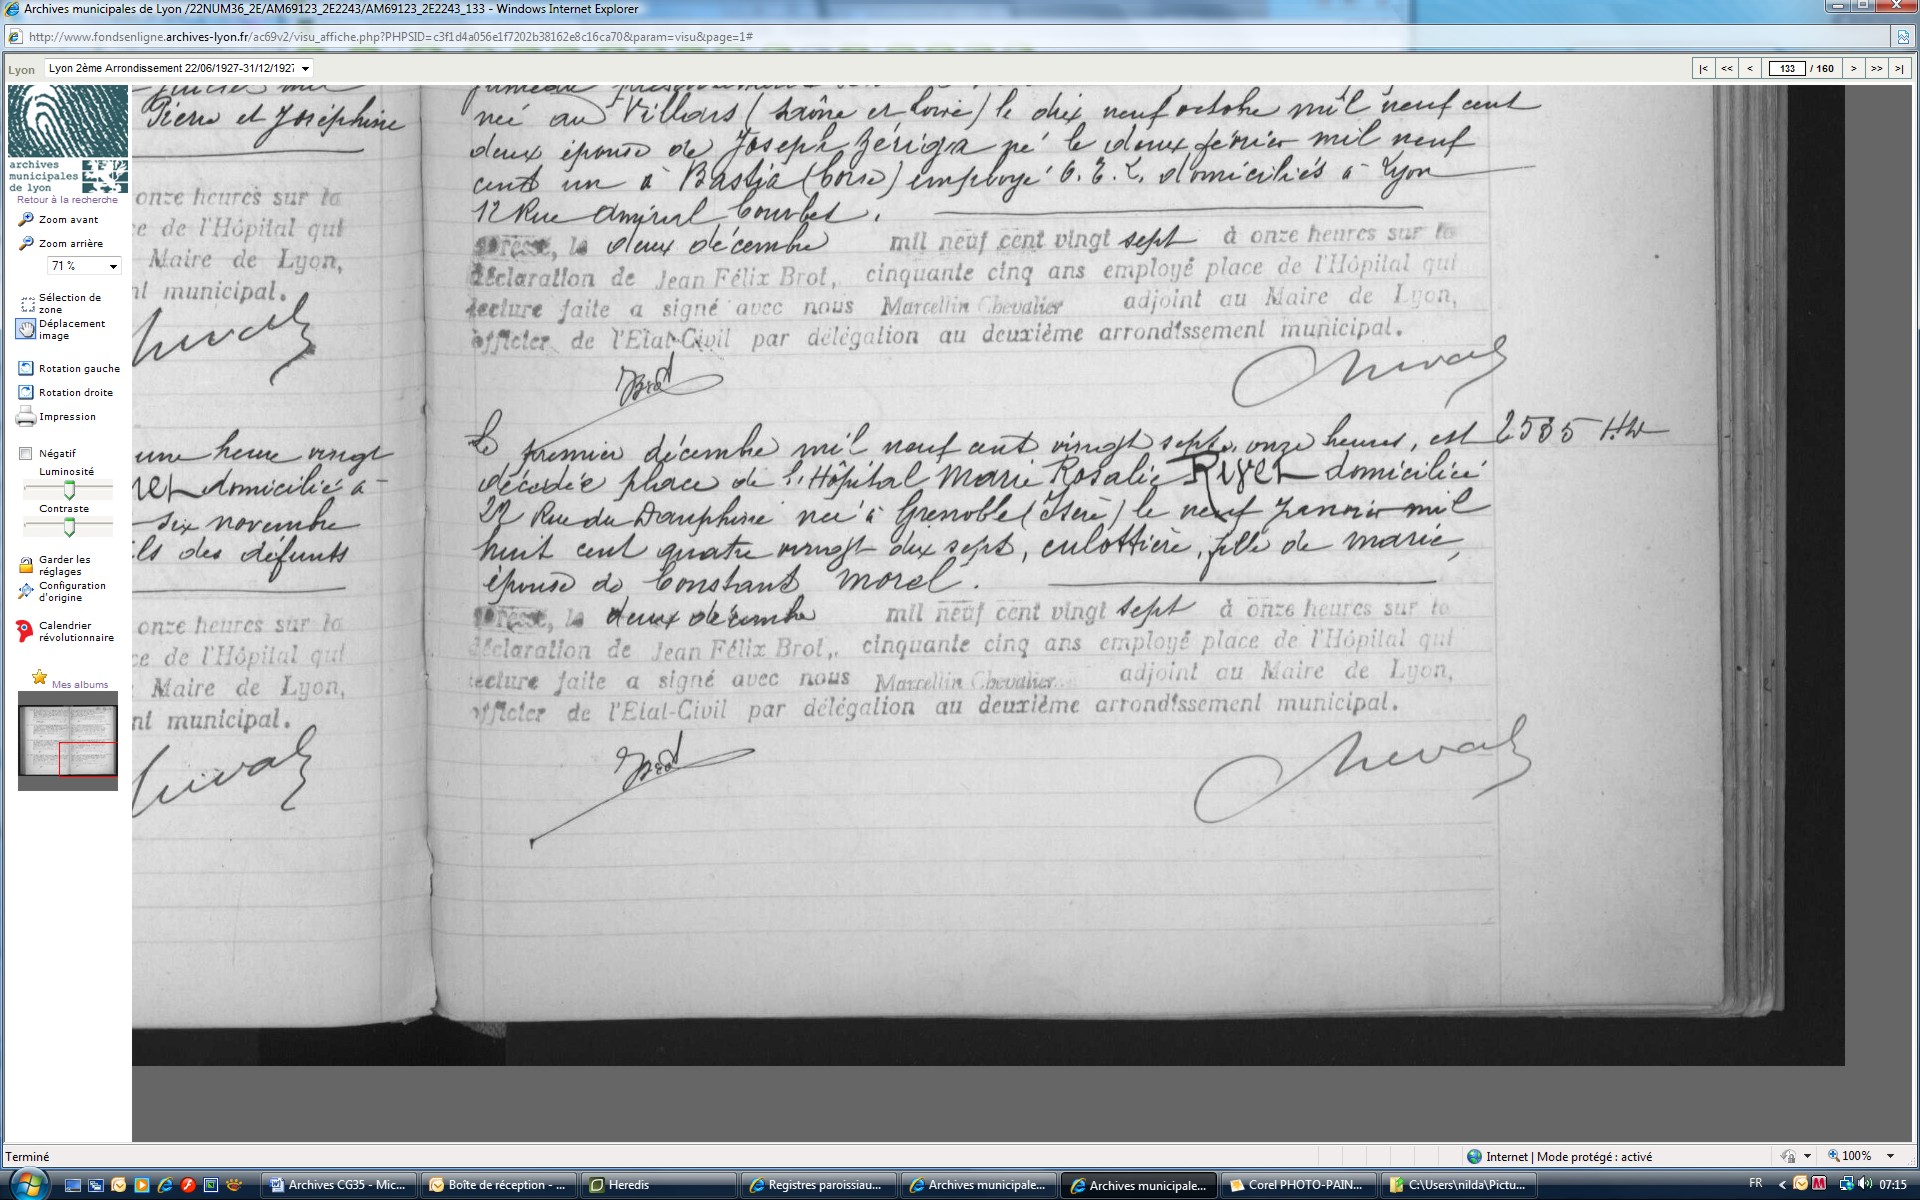 Archives municipales de Lyon /22NUM36_2E/AM69123_2E2243/AM69123_2E2243_133 - Windows Internet Explorer
http://www.fondsenligne.archives-lyon.fr/ac69v2/visu_affiche.php?PHPSID=c3f1d4a056e1f7202b38162e8c16ca70&param=visu&page=1#
Lyon
Lyon 2ème Arrondissement 22/06/1927-31/12/1927
|< << < 133 / 160 > >> >|
archives
municipales
de lyon
Retour à la recherche
Zoom avant
Zoom arrière
71 %
Sélection de
zone
Déplacement
image
Rotation gauche
Rotation droite
Impression
Négatif
Luminosité
Contraste
Garder les
réglages
Configuration
d'origine
Calendrier
révolutionnaire
Mes albums
Pierre et Joséphine
onze heures sur la
ce de l'Hôpital qui
Maire de Lyon,
nt municipal.
une heure vingt
domicilié à
six novembre
ils des défunts
onze heures sur la
ce de l'Hôpital qui
Maire de Lyon,
nt municipal.
née au Villars (Saône et Loire) le dix neuf octobre mil neuf cent
deux épouse de Joseph Zériga né le deux février mil neuf
cent un à Bastia (Corse) employé O. T. L. domiciliés à Lyon
12 Rue Amiral Courbet.
Dressé, le deux décembre mil neuf cent vingt sept à onze heures sur la
déclaration de Jean Félix Brot, cinquante cinq ans employé place de l'Hôpital qui
lecture faite a signé avec nous Marcellin Chevalier adjoint au Maire de Lyon,
officier de l'Etat-Civil par délégation au deuxième arrondissement municipal.
Brot
Le premier décembre mil neuf cent vingt sept, onze heures, est 2535
décédée place de l'Hôpital Marie Rosalie domiciliée
22 Rue du Dauphiné née à Grenoble (Isère) le neuf Janvier mil
huit cent quatre vingt dix sept, culottière, fille de Marie,
épouse de Constant Morel.
Dressé, le deux décembre mil neuf cent vingt sept à onze heures sur la
déclaration de Jean Félix Brot, cinquante cinq ans employé place de l'Hôpital qui
lecture faite a signé avec nous Marcellin Chevalier adjoint au Maire de Lyon,
officier de l'Etat-Civil par délégation au deuxième arrondissement municipal.
Brot
Terminé
Internet | Mode protégé : activé
100%
Archives CG35 - Mic...
Boîte de réception - ...
Heredis
Registres paroissiau...
Archives municipale...
Archives municipale...
Corel PHOTO-PAIN...
C:\Users\nilda\Pictu...
FR
07:15